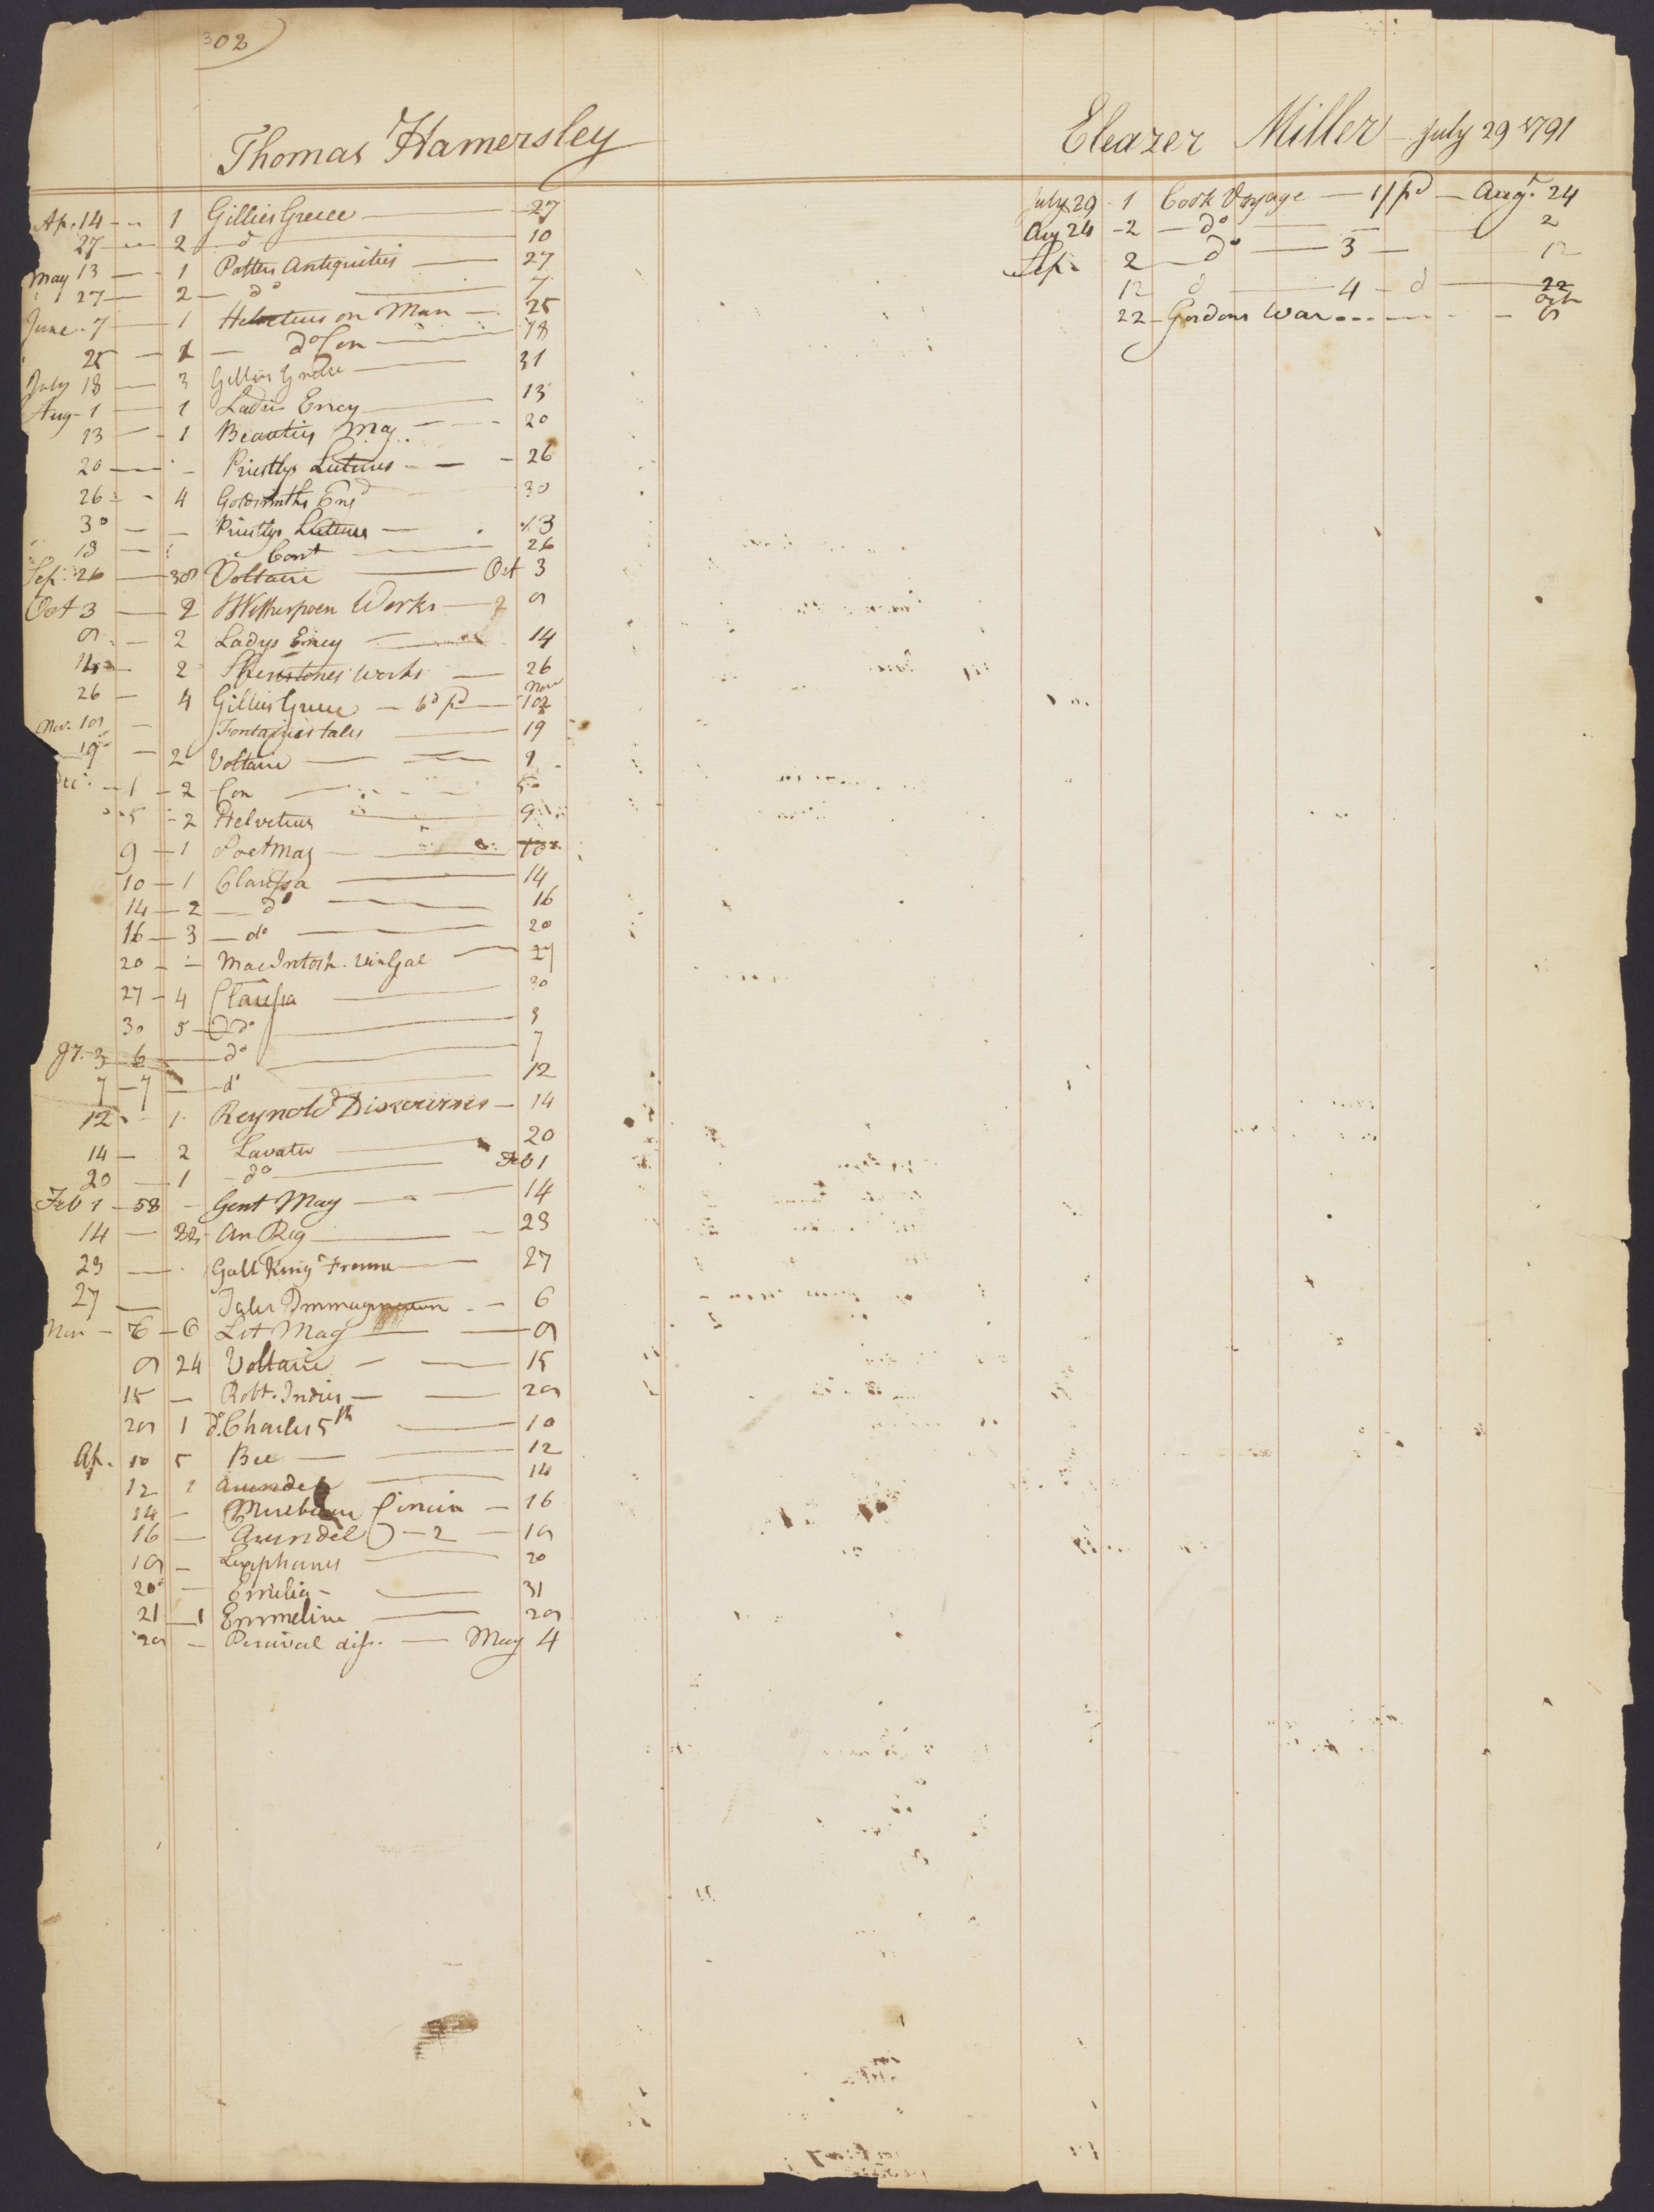 302
Thomas Hamersley
Ap. 14 1 Gillies Greece 27
27 2 d 10
May 13 1 Potters Antiquities 27
27 2 do 7
June 7 1 Helvetius on Man 25
25 1 do Con 18
July 18 3 Gillies Greece 31
Aug 1 1 Ladies Ency 13
13 1 Beauties Mag 20
20 Priestlys Lectures 26
26 4 Goldsmiths Eng 30
30 Priestlys Lectures 13
13 Cont 26
Sep. 26 30 Voltaire Oct 3
Oct 3 2 Witherspoon Works 9
9 2 Ladys Ency 14
14 2 Shenstones Works 26
26 4 Gillies Greece 6d pd Nov 10
Nov. 10 Fontaines tales 19
19 2 Voltaire 1
Dec. 1 2 Con 5
5 2 Helvetius 9
9 1 Poet Mag 10
10 1 Clarissa 14
14 2 do 16
16 3 do 20
20 MacIntosh. 27
27 4 Clarissa 30
30 5 do 3
3 6 do 7
7 7 do 12
12 1 Reynold Discourses 14
14 2 Lavater 20
20 1 do Feb 1
Feb 1 58 Gent Mag 14
14 An Reg 23
23 Gall King France 27
27 Tales 6
6 6 Lit Mag 9
9 24 Voltaire 15
15 Robt. Indies 29
29 1 do. Charles 5th 10
Ap. 10 5 Bee 12
12 1 Arundel 14
14 16
16 Arundel 2 19
19 Lexiphanes 20
20 Emilia 31
21 1 Emmeline 29
29 Percival diss. May 4
Eleazer Miller July 29 1791
July 29 1 Cook Voyage 1/ pd Augt. 24
Aug 24 2 do 2
Sep. 2 do 3 12
12 d 4 d 22
22 Gordons War Octr 9